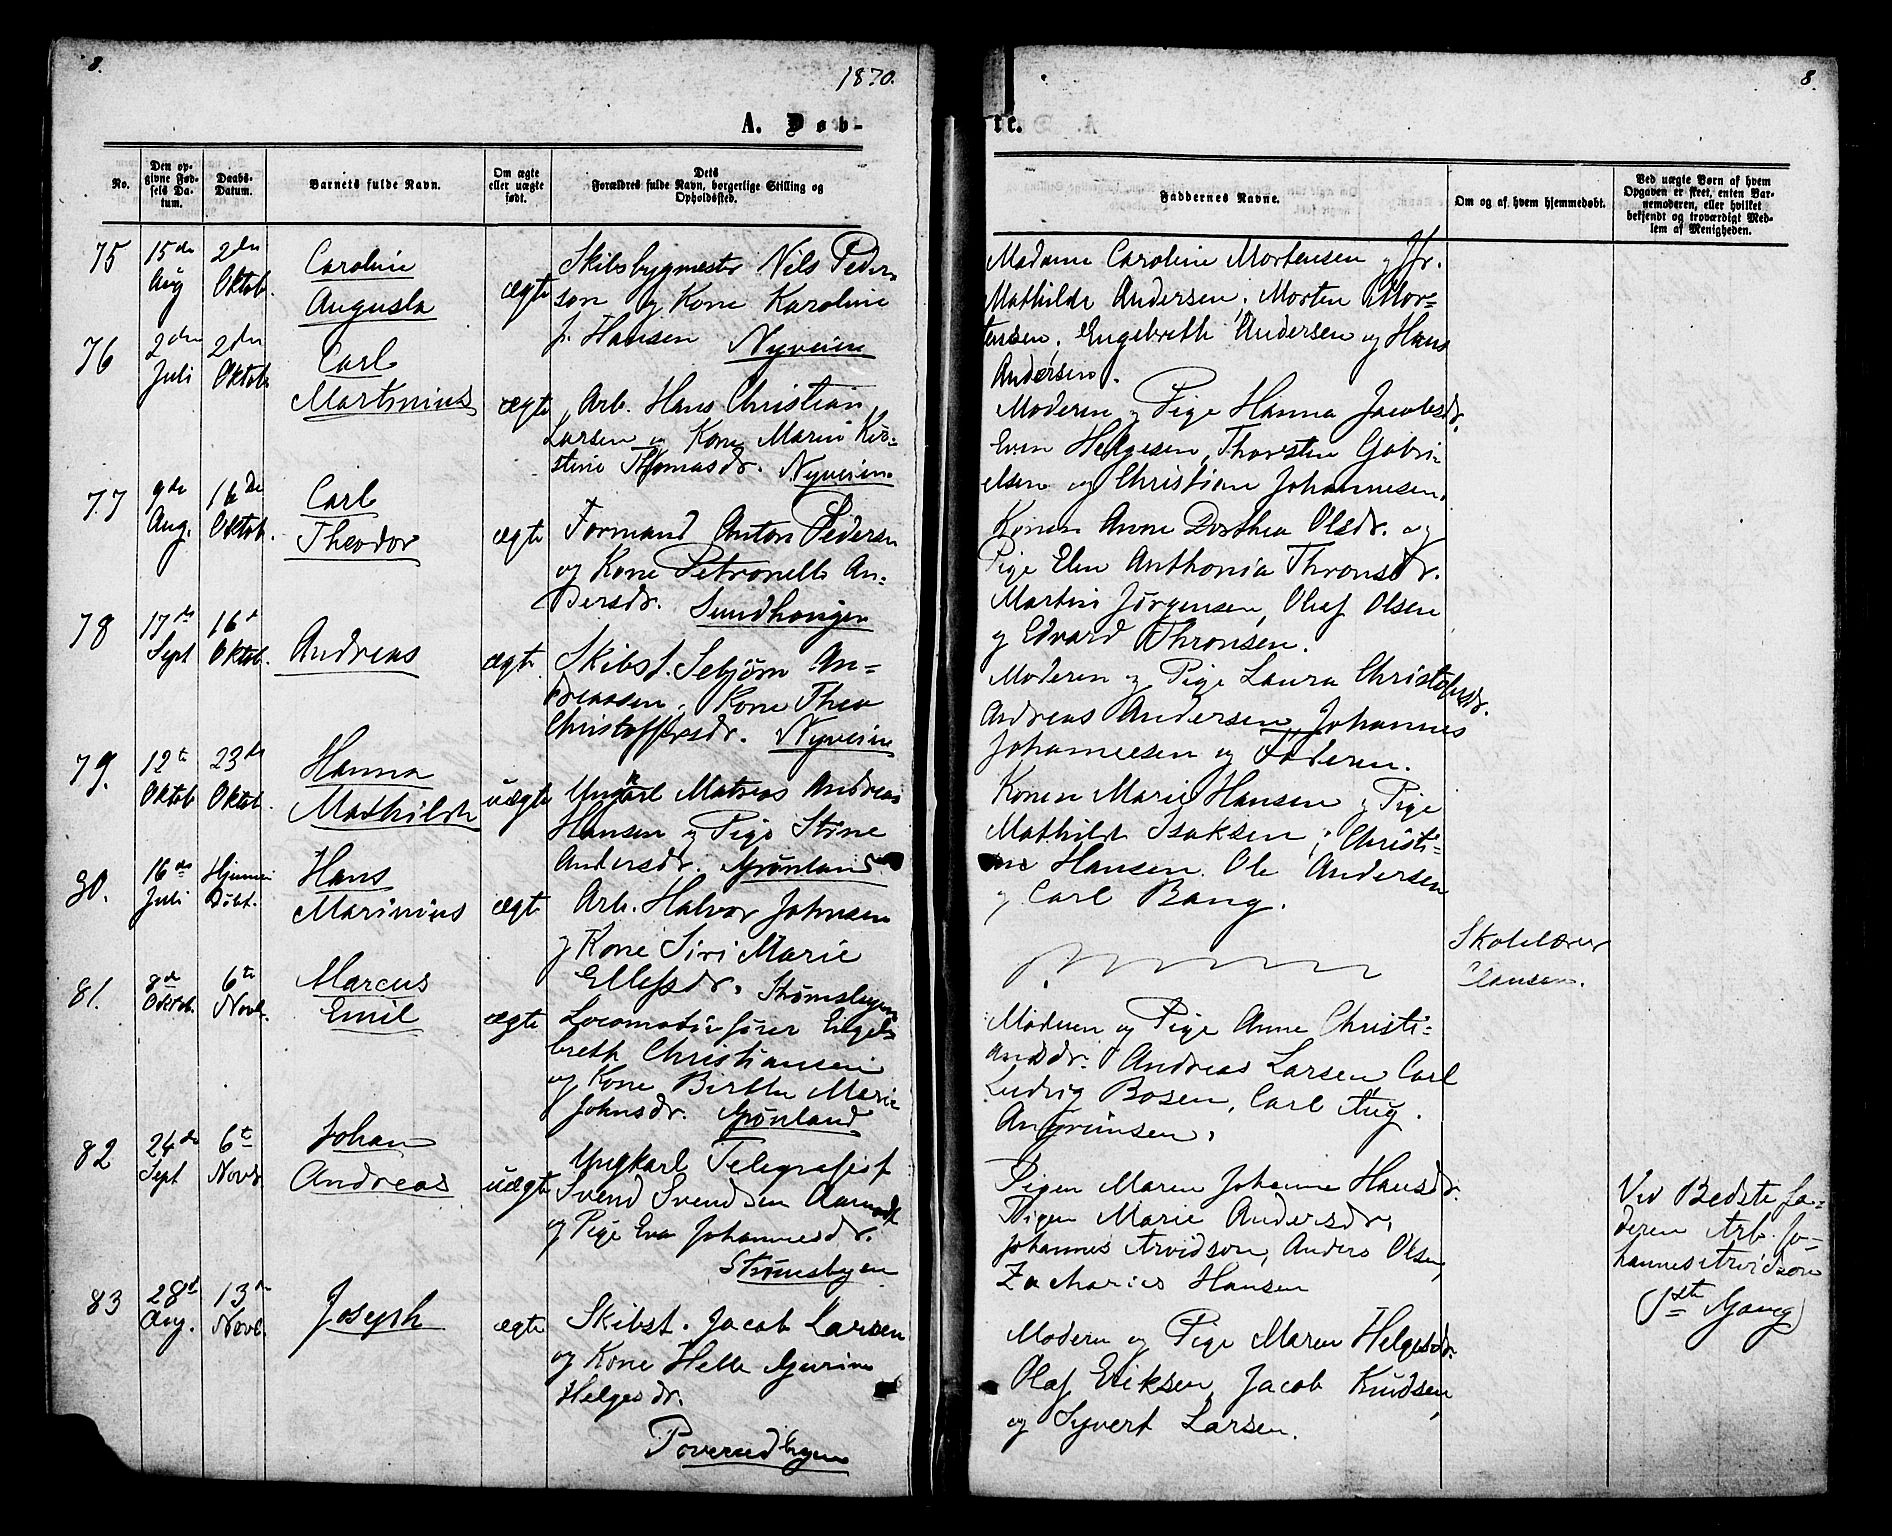 8.
1870.
A. Døb-
No.
Den op-
givne Fød-
sels Da-
tum.
Daabs-
Datum.
Barnets fulde Navn.
Om ægte
eller uægte
født.
Dets
Forældres fulde Navn, borgerlige Stilling og
Opholdssted.
75
15de
Aug
2den
Oktob.
Caroline
Augusta
ægte
Skibsbygmester Nils Peder-
son og Kone Karoline
f. Hansen Nyveien
76
2den
Juli
2den
Oktob.
Carl
Martinius
ægte
Arb. Hans Christian
Larsen og Kone Maren Kir-
stine Thomasdr. Nyveien
77
9de
Aug.
16de
Oktob.
Carl
Theodor
ægte
Formand Anton Pedersen
og Kone Petronelle An-
dersdr. Sundhougen
78
17de
Sept
16d
Oktob.
Andreas
ægte
Skibst. Sebjørn An-
dreassen, Kone Thea
Christoffersdr. Nyveien
79.
12te
Oktob
23de
Oktob.
Hanna
Mathilde
uægte
Ungkarl Matias Andreas
Hansen og Pige Stine
Andersdr. Grønland
80.
16de
Juli
Hjemme
Døbt.
Hans
Marinius
ægte
Arb. Halvor Johnsen
og Kone Siri Marie
Ellefsdr. Strømsbyen
81.
8de
Oktob.
6te
Novb.
Marcus
Emil
ægte
Locomotivfører Engel-
breth Christiansen
og Kone Birthe Marie
Johnsdr. Grønland
82
24de
Sept
6te
Novb
Johan
Andreas
uægte
Ungkarl Telegrafist
Svend Svendsen Aamodt
og Pige Eva Johannesdr.
Strømsbyen
83
28de
Aug.
13de
Novb.
Joseph
ægte
Skibst. Jacob Larsen
og Kone Helle Gurine
Helgesdr.
8.
te.
Faddernes Navne.
Om og af hvem hjemmedøbt.
Ved uægte Børn af hvem
Opgaven er skeet, enten Bar-
nemoderen, eller hvilket
bekjendt og troværdigt Med-
lem af Menigheden.
Madame Caroline Mortensen og Jfr.
Mathilde Andersen, Morten Mor-
tensen, Engebreth Andersen og Hans
Andersen.
Moderen og Pige Hanna Jacobsdr.
Even Helgesen, Thorsten Gabri-
elsen og Christian Johannesen.
Konen Anne Dorthea Olsdr. og
Pige Elen Anthonia Thronsdr.
Martin Jørgensen, Oluf Olsen
og Edvard Thronsen.
Moderen og Pige Laura Christofersdr.
Andreas Andersen, Johannes
Johannesen og Faderen.
Konen Marie Hansen og Pige
Mathilde Isaksen; Christi-
ne Hansen. Ole Andersen
og Carl Bang.
Skolelærer
Clausen.
Moderen og Pige Anne Christi-
ansdr. Andreas Larsen Carl
Ludvig Bosen, Carl Aug.
Pigen Maren Johanne Hansdr.
Pigen Marie Andersdr.
Johannes Arvidson, Anders Olsen,
Zacharies Hansen
Ved Bedstefa-
deren Arb. Jo-
hannes Arvidson
(1ste Gang)
Moderen og Pige Maren Helgesdr.
Olaf Eriksen, Jacob Knudsen
og Syvert Larsen.